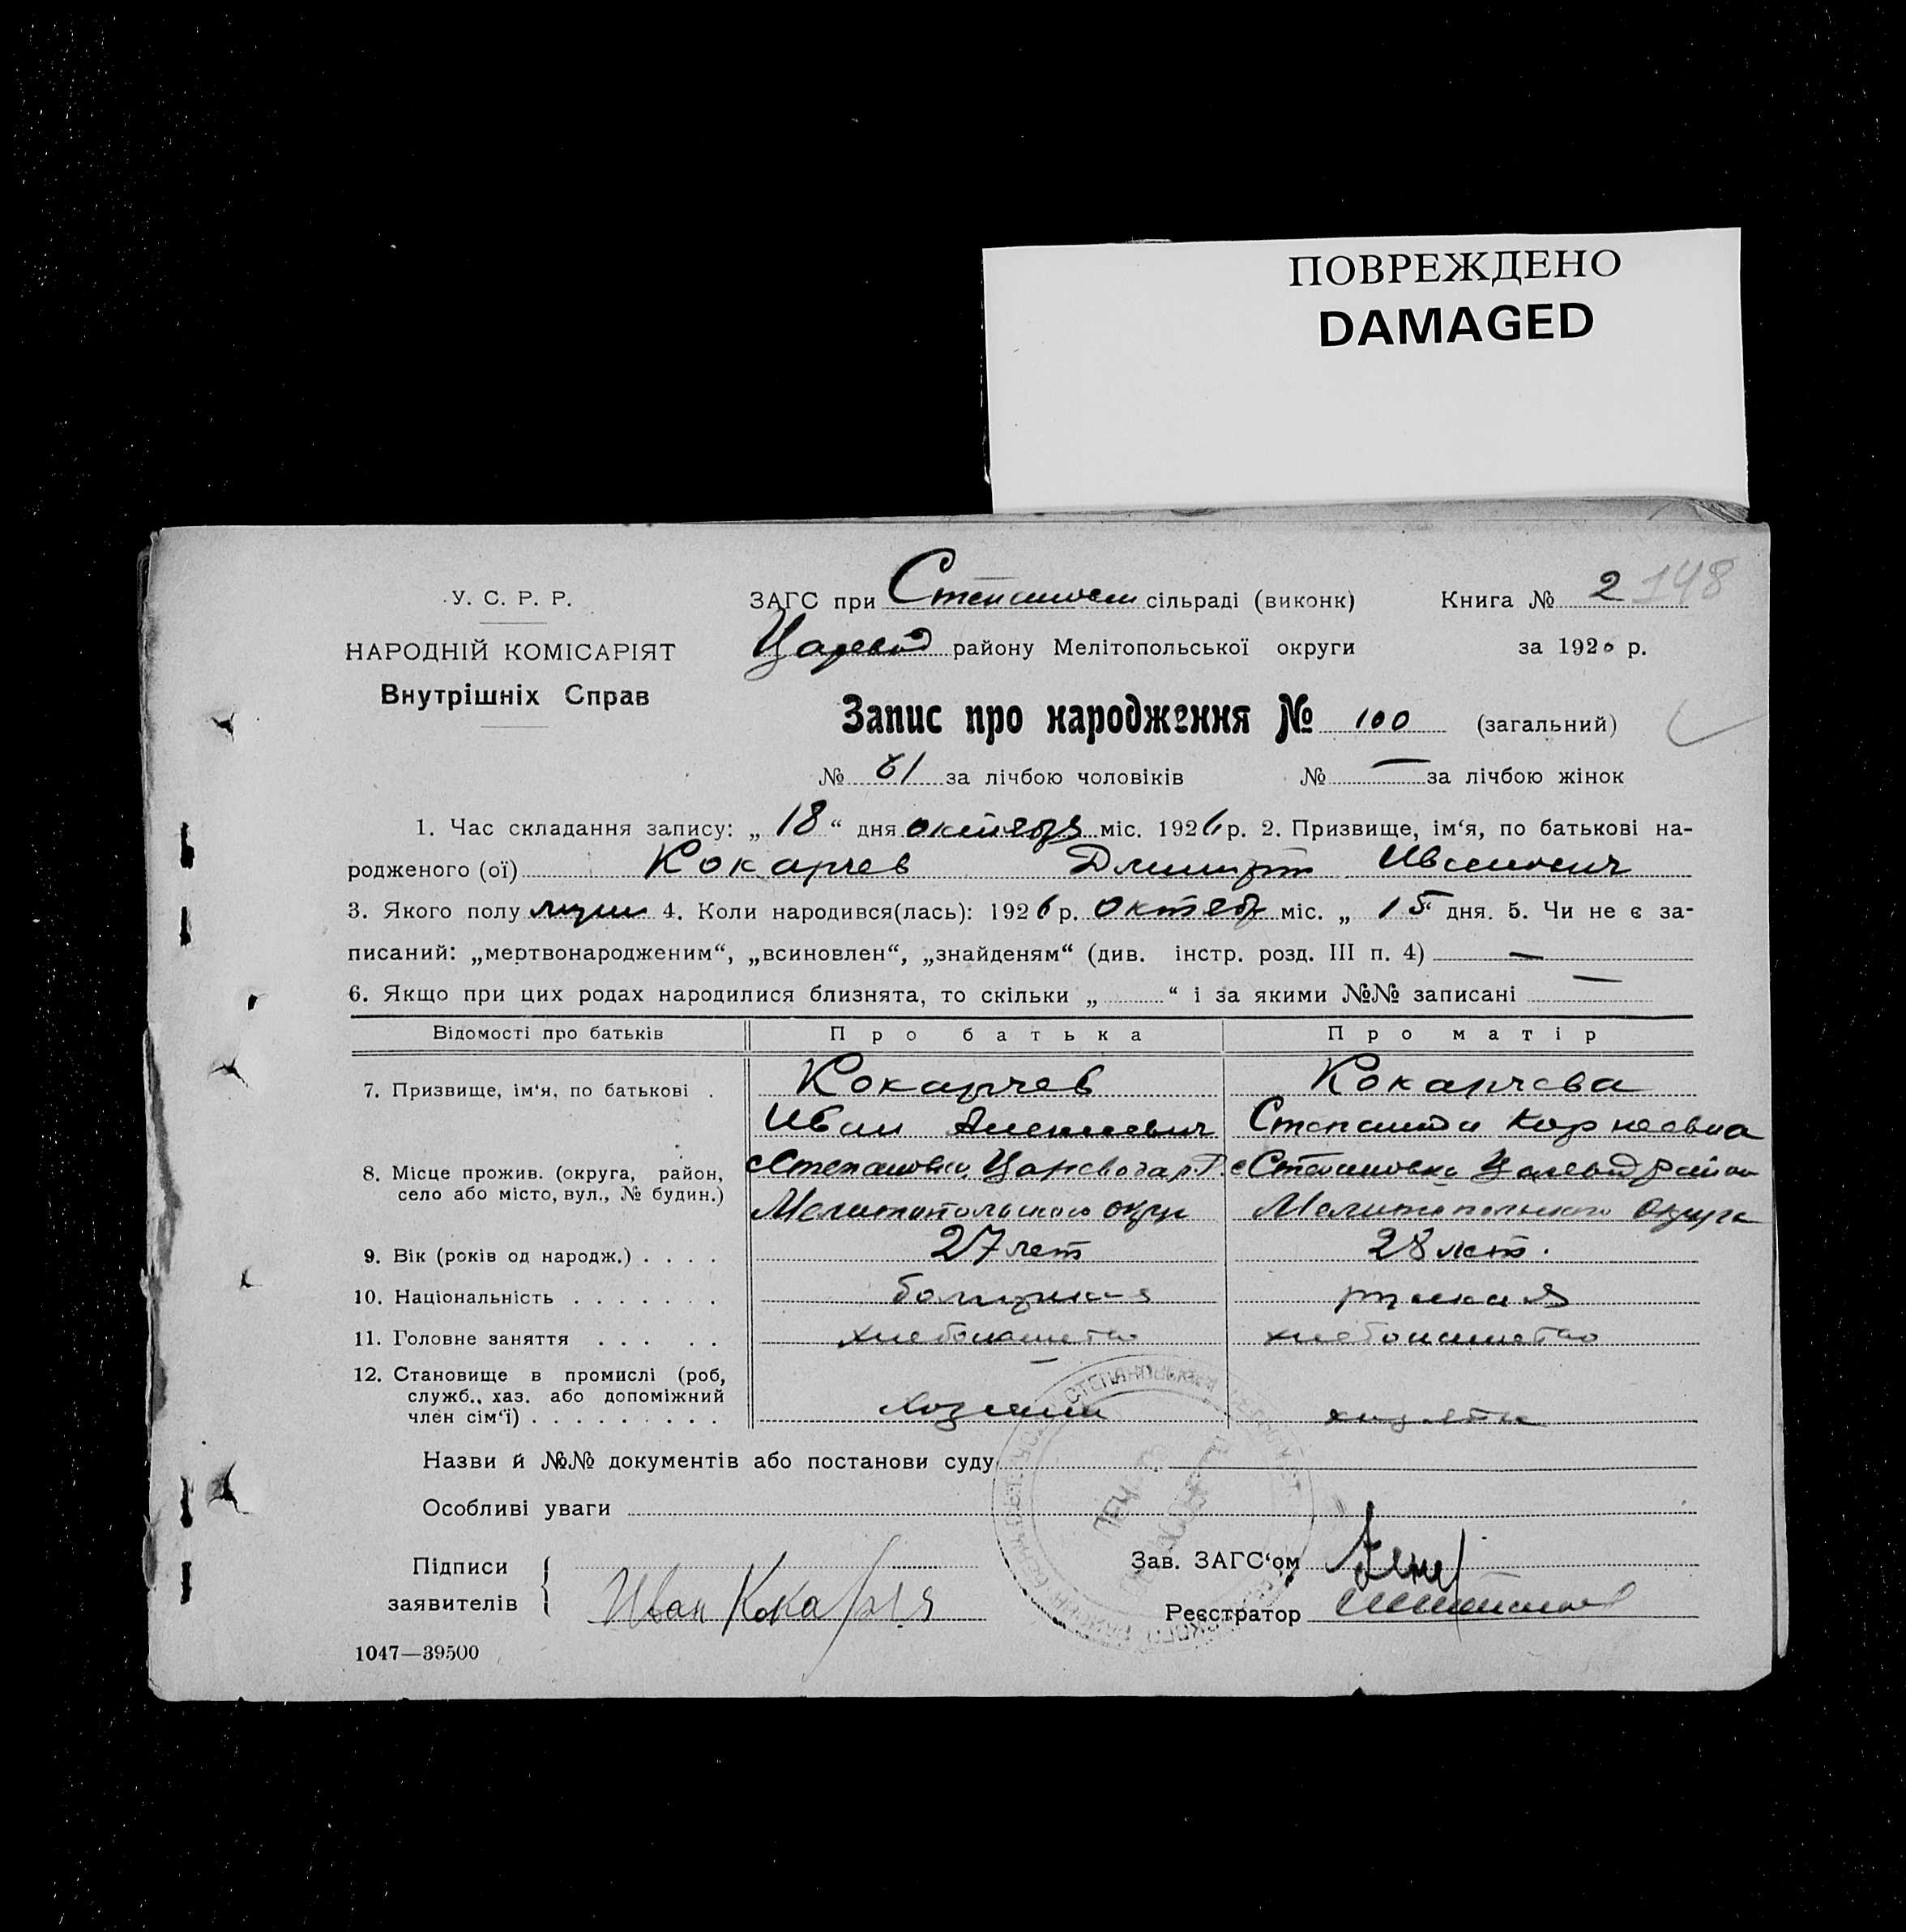 ПОВРЕЖДЕНО
DAMAGED
У. С. Р. Р.
НАРОДНІЙ КОМІСАРІЯТ
Внутрішніх Справ
ЗАГС при сільраді (виконк)
Книга № 2 148
Царевод району Мелітопольської округи
за 192 р.
Запис про народження № 100 (загальний)
№ 61 за лічбою чоловіків № — за лічбою жінок
1. Час складання запису: „ 18 “ дня октября міс. 1926 р. 2. Призвище, ім‘я, по батькові на-
родженого (ої) Кокарчев Дмитрий Иванович
3. Якого полу муж 4. Коли народився(лась): 1926 р. октяб міс. „ 15 дня. 5. Чи не є за-
писаний: „мертвонародженим“, „всиновлен“, „знайденям“ (див. інстр. розд. III п. 4) —
6. Якщо при цих родах народилися близнята, то скільки „ “ і за якими №№ записані —
Відомості про батьків Про батька Про матір
7. Призвище, ім‘я, по батькові . Кокарчев Кокарчева
Иван Степанида Корнеевна
8. Місце прожив. (округа, район, с Степановка с Степановка
село або місто, вул., № будин.) Мелитопольского Мелитопольского округа
9. Вік (років од народж.) . . . . 27 лет 28 лет.
10. Національність . . . . . . . болгарская русская
11. Головне заняття . . . . . хлебопашество хлебопашество
12. Становище в промислі (роб,
служб., хаз. або допоміжний
член сім‘ї) . . . . . . . . . хозяин
Назви й №№ документів або постанови суду
Особливі уваги
Підписи
заявителів
Иван
Зав. ЗАГС‘ом
Реєстратор
1047—39500